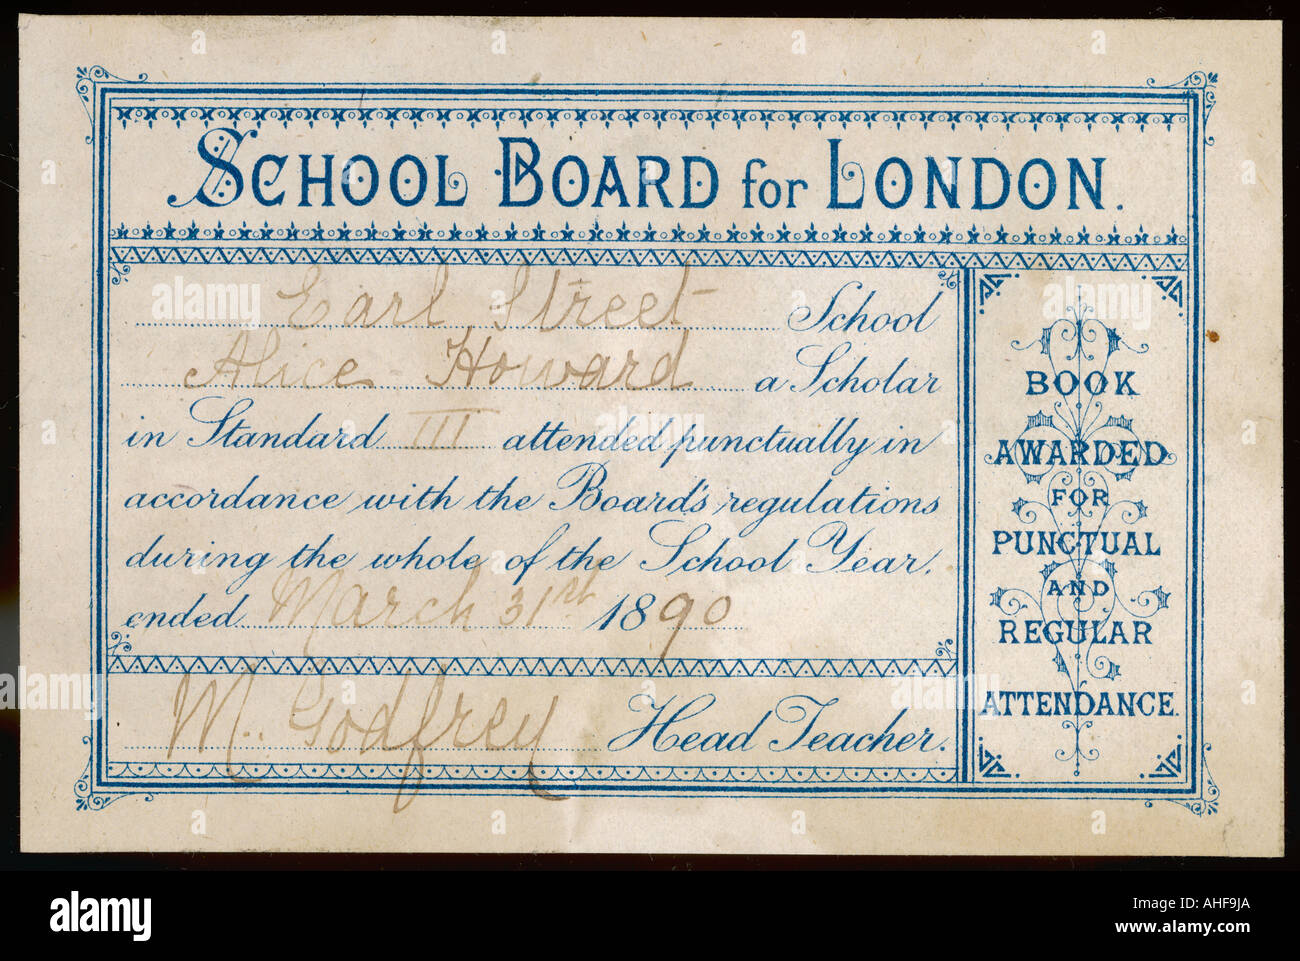 SCHOOL BOARD for LONDON.
Earl Street School
Alice Howard a Scholar
in Standard III attended punctually in
accordance with the Board's regulations
during the whole of the School Year,
ended March 31st 1890
M. Godfrey Head Teacher.
BOOK
AWARDED
FOR
PUNCTUAL
AND
REGULAR
ATTENDANCE.
alamy
Image ID: AHF9JA
www.alamy.com